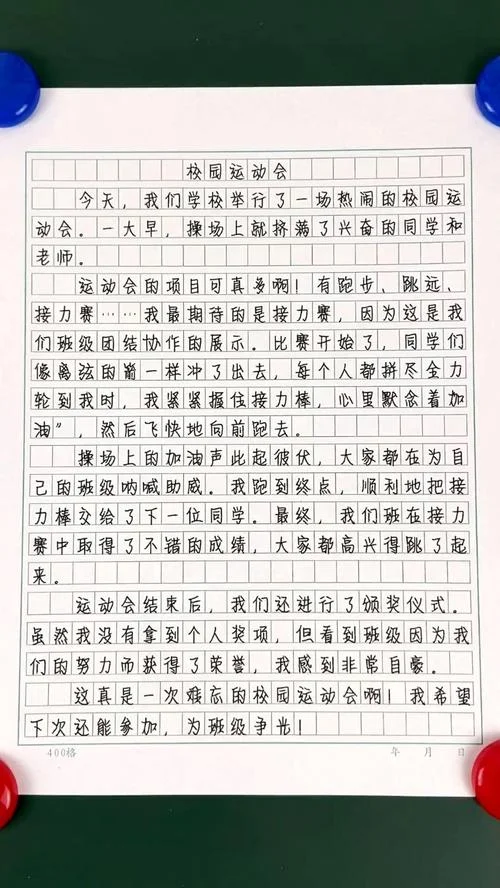 校园运动会
今天，我们学校举行了一场热闹的校园运
动会。一大早，操场上就挤满了兴奋的同学和
老师。
运动会的项目可真多啊！有跑步、跳远、
接力赛……我最期待的是接力赛，因为这是我
们班级团结协作的展示。比赛开始了，同学们
像离弦的箭一样冲了出去，每个人都拼尽全力
轮到我时，我紧紧握住接力棒，心里默念着加
油”，然后飞快地向前跑去。
操场上的加油声此起彼伏，大家都在为自
己的班级呐喊助威。我跑到终点，顺利地把接
力棒交给了下一位同学。最终，我们班在接力
赛中取得了不错的成绩，大家都高兴得跳了起
来。
运动会结束后，我们还进行了颁奖仪式。
虽然我没有拿到个人奖项，但看到班级因为我
们的努力而获得了荣誉，我感到非常自豪。
这真是一次难忘的校园运动会啊！我希望
下次还能参加，为班级争光！
400格 年 月 日